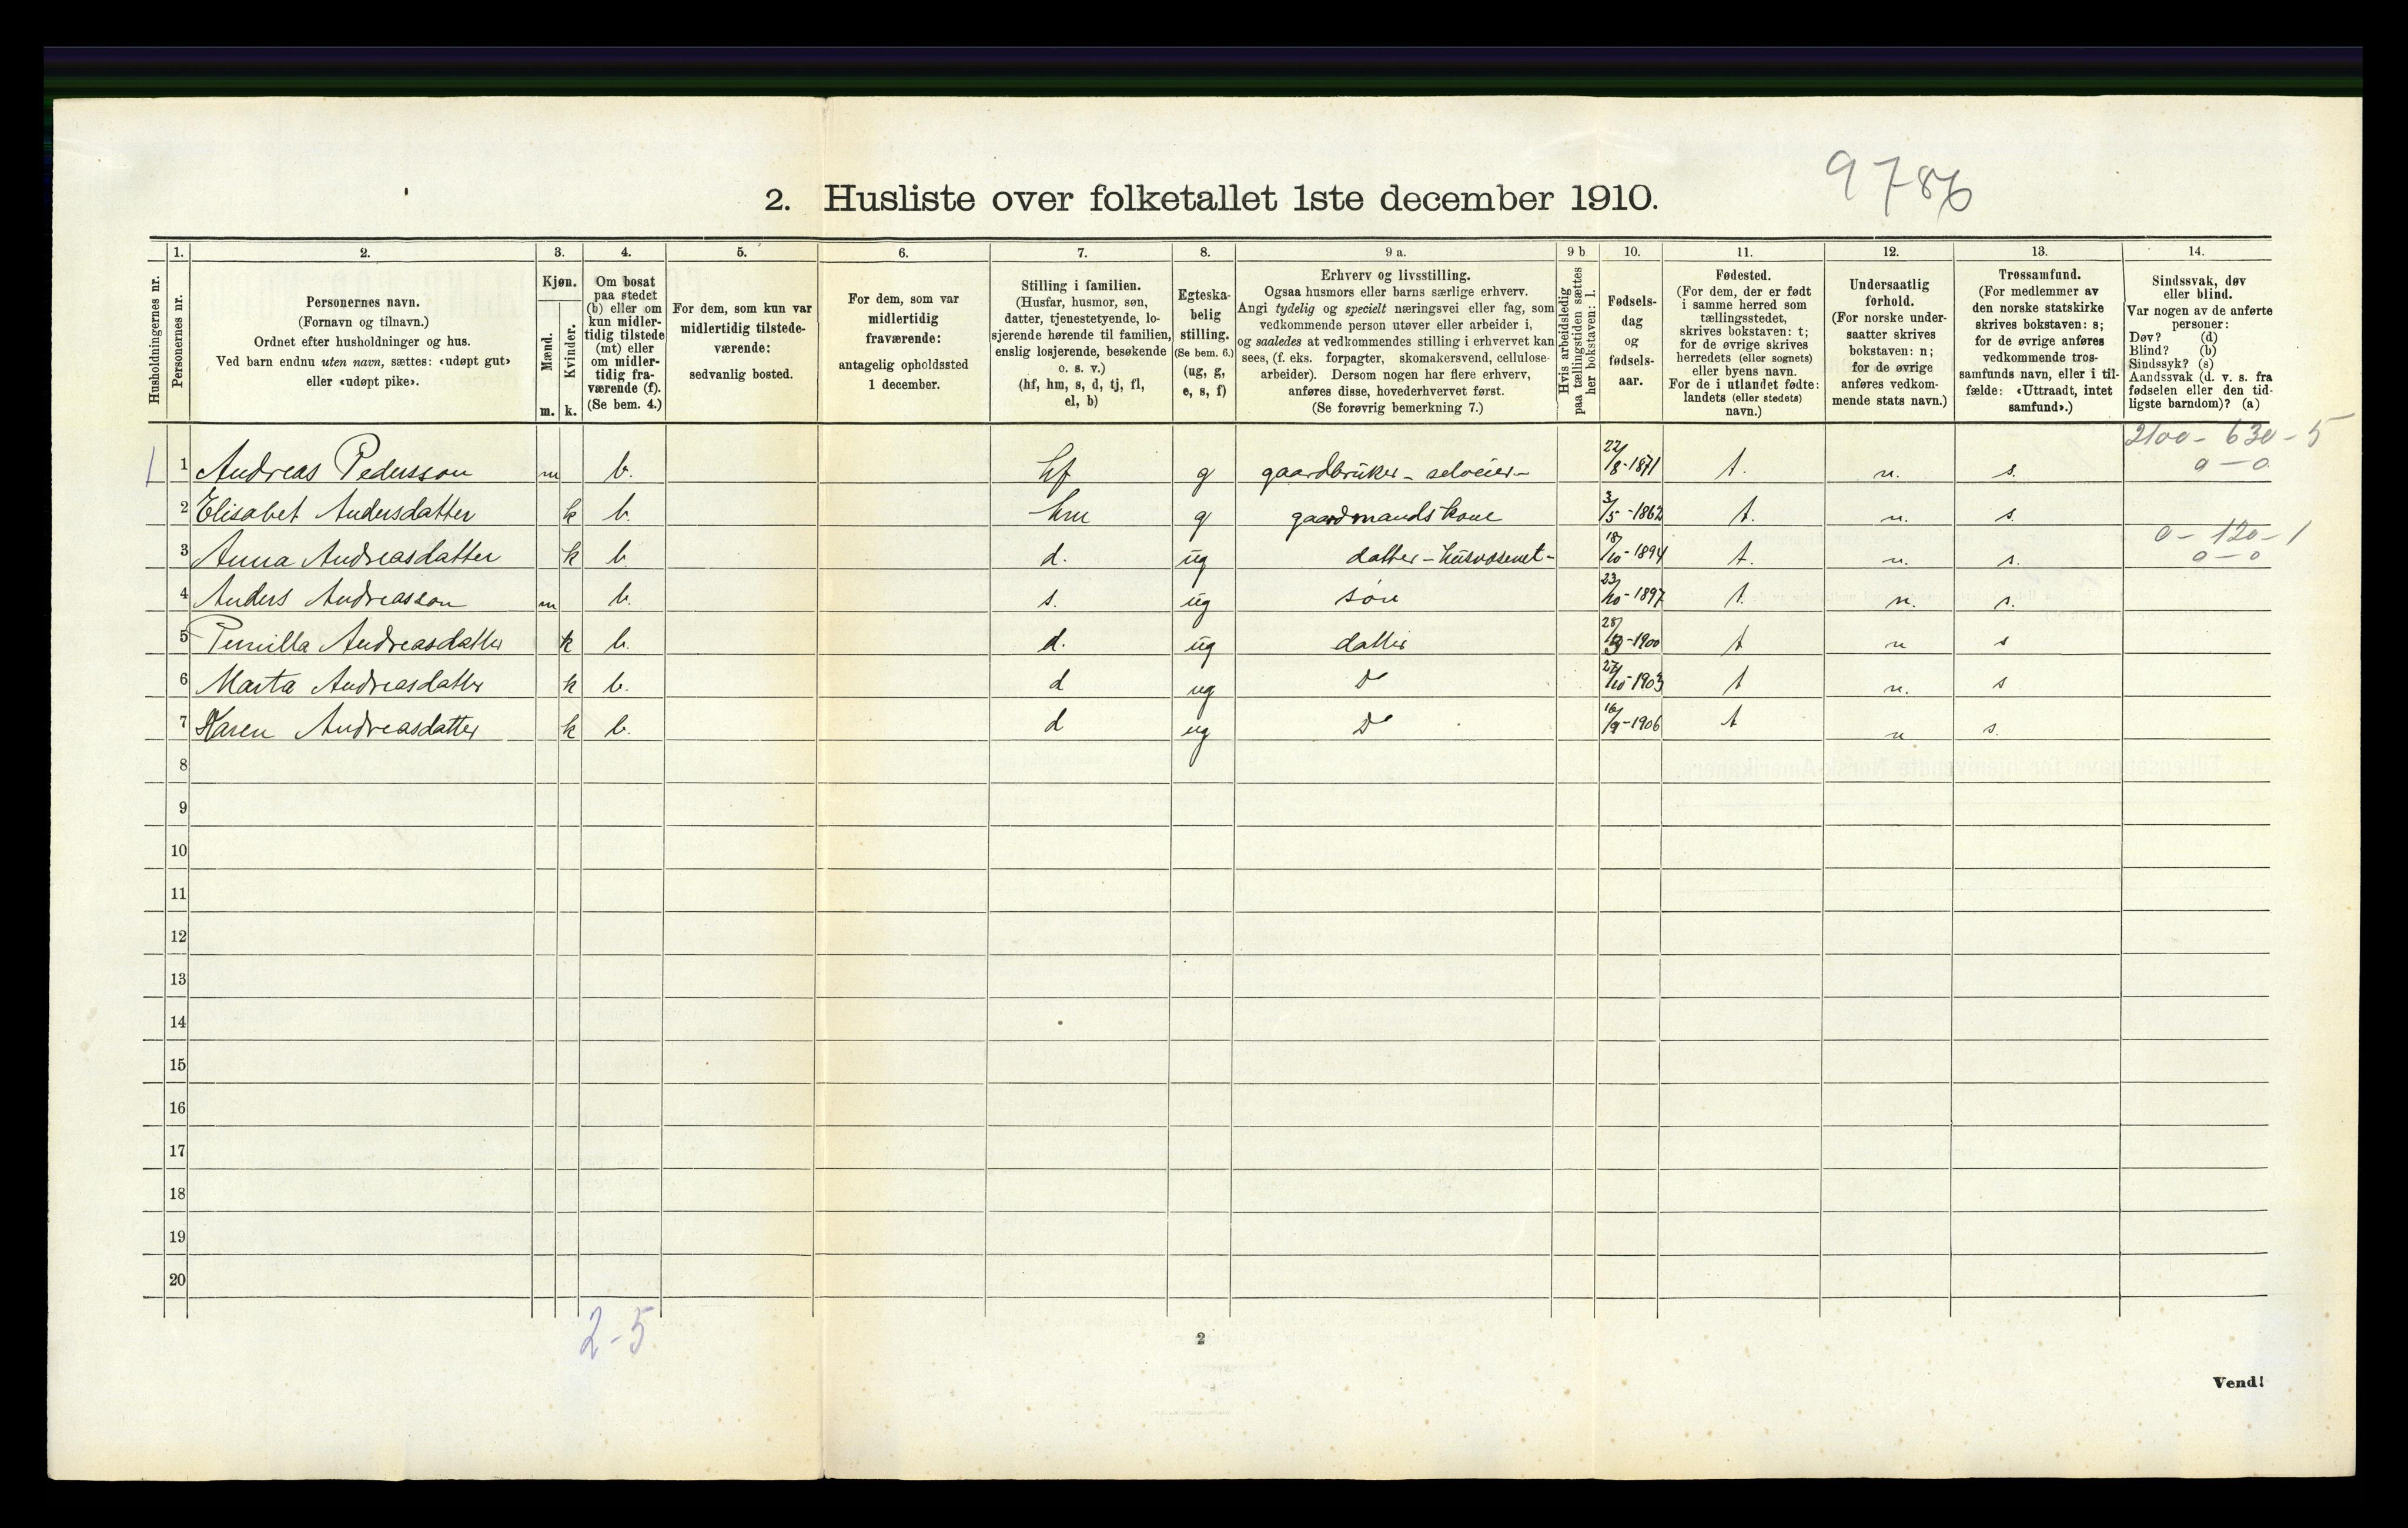 9786
2. Husliste over folketallet 1ste december 1910.
Husholdningernes nr.
1. Personernes nr.
2. Personernes navn.
(Fornavn og tilnavn.)
Ordnet efter husholdninger og hus.
Ved barn endnu uten navn, sættes: «udøpt gut»
eller «udøpt pike».
3. Kjøn.
Mænd. m.
Kvinder. k.
4. Om bosat
paa stedet
(b) eller om
kun midler-
tidig tilstede
(mt) eller
om midler-
tidig fra-
værende (f).
(Se bem. 4.)
5. For dem, som kun var
midlertidig tilstede-
værende:
sedvanlig bosted.
6. For dem, som var
midlertidig
fraværende:
antagelig opholdssted
1 december.
7. Stilling i familien.
(Husfar, husmor, søn,
datter, tjenestetyende, lo-
sjerende hørende til familien,
enslig losjerende, besøkende
o. s. v.)
(hf, hm, s, d, tj, fl,
el, b)
8. Egteska-
belig
stilling.
(Se bem. 6.)
(ug, g,
e, s, f)
9 a. Erhverv og livsstilling.
Ogsaa husmors eller barns særlige erhverv.
Angi tydelig og specielt næringsvei eller fag, som
vedkommende person utøver eller arbeider i,
og saaledes at vedkommendes stilling i erhvervet kan
sees, (f. eks. forpagter, skomakersvend, cellulose-
arbeider). Dersom nogen har flere erhverv,
anføres disse, hovederhvervet først.
(Se forøvrig bemerkning 7.)
9 b Hvis arbeidsledig
paa tællingstiden sættes
her bokstaven: l.
10. Fødsels-
dag
og
fødsels-
aar.
11. Fødested.
(For dem, der er født
i samme herred som
tællingsstedet,
skrives bokstaven: t;
for de øvrige skrives
herredets (eller sognets)
eller byens navn.
For de i utlandet fødte:
landets (eller stedets)
navn.)
12. Undersaatlig
forhold.
(For norske under-
saatter skrives
bokstaven: n;
for de øvrige
anføres vedkom-
mende stats navn.)
13. Trossamfund.
(For medlemmer av
den norske statskirke
skrives bokstaven: s;
for de øvrige anføres
vedkommende tros-
samfunds navn, eller i til-
fælde: «Uttraadt, intet
samfund».)
14. Sindssvak, døv
eller blind.
Var nogen av de anførte
personer:
Døv? (d)
Blind? (b)
Sindssyk? (s)
Aandssvak (d. v. s. fra
fødselen eller den tid-
ligste barndom)? (a)
2100 - 630 - 5
1 1 Andreas Pedersson m b. hf g gaardbruker - selveier - 22/8-1871 t. n. s. 0 - 0
2 Elisabet Andersdatter k b. hm g gaardmandskone 3/5-1862 t. n. s.
0 - 120 - 1
3 Anna Andreasdatter k b. d. ug datter - husvæsenet - 18/10-1894 t. n. s. 0 - 0
4 Anders Andreasson m b. s. ug søn 23/10-1897 t. n. s.
5 Pernilla Andreasdatter k b. d. ug datter 28/-1900 t n s
6 Marta Andreasdatter k b. d ug Do 27/10-1903 t n. s
7 Karen Andreasdatter k b. d ug Do 16/9-1906 t n s.
8
9
10
11
12
13
14
15
16
17
18
19
20
2-5
2
Vend!